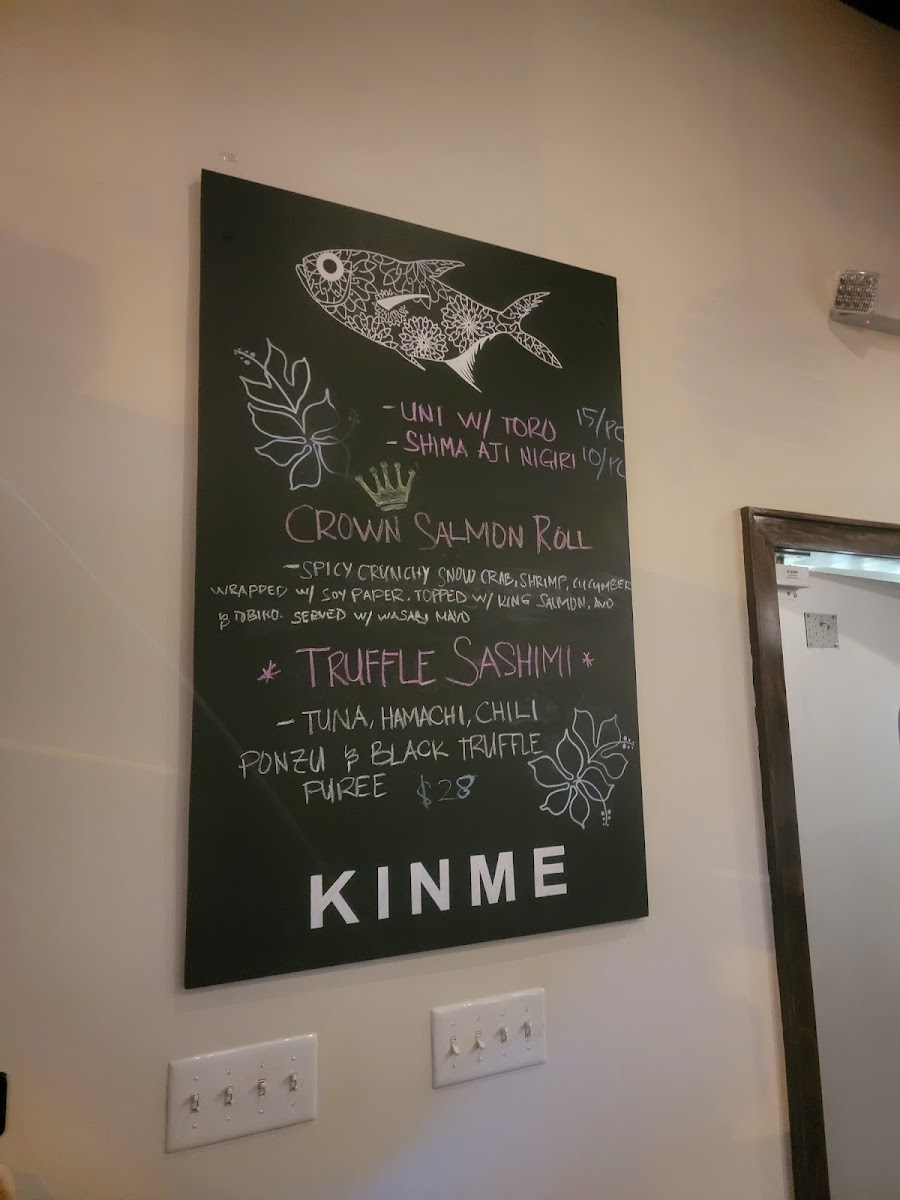 - UNI W/ TORO 15/PC
- SHIMA AJI NIGIRI 10/PC
CROWN SALMON ROLL
- SPICY CRUNCHY SNOW CRAB, SHRIMP, CUCUMBER
WRAPPED W/ SOY PAPER. TOPPED W/ KING SALMON, AVO
& TOBIKO. SERVED W/ WASABI MAYO
* TRUFFLE SASHIMI *
- TUNA, HAMACHI, CHILI
PONZU & BLACK TRUFFLE
PUREE $28
KINME